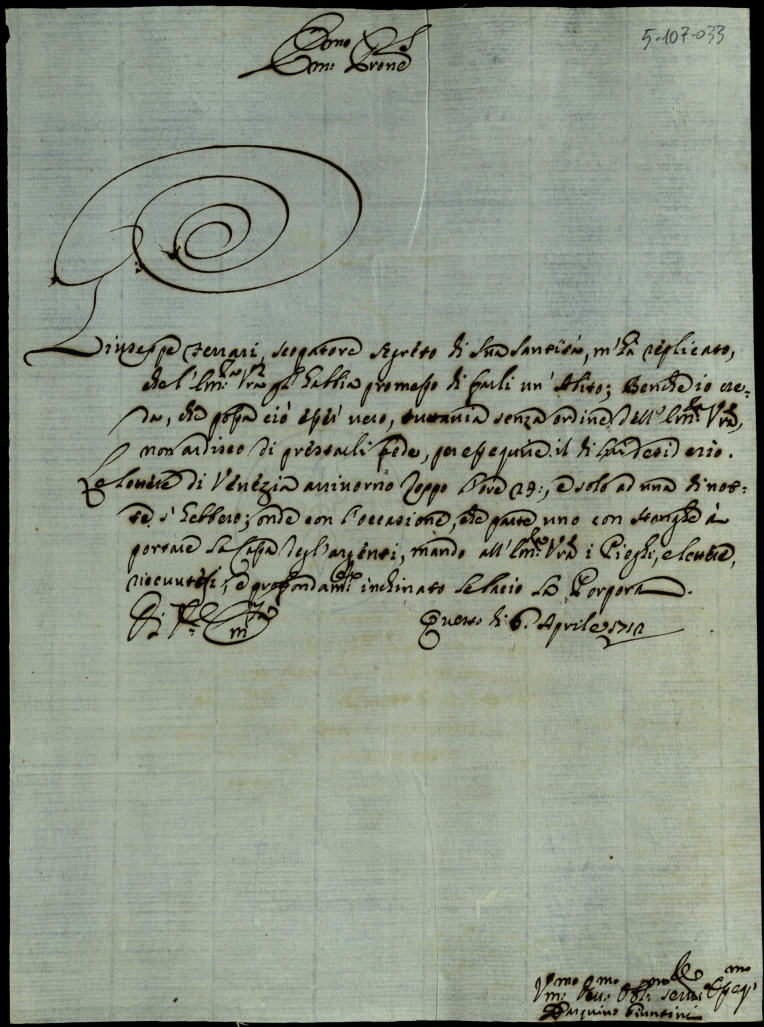 5-107-033
Emo S.
Em: Prone
Giuseppe Ferrari, scopatore segreto di Sua Santità, m'hà replicato,
che l'Em:za Vra gl'habbia promesso di farli un' Abito; Benche io cre=
da, che possa ciò esser vero, tuttavia senza ordine dell'Em:za Vra,
non ardisco di prestarli fede, per esseguire il di lui desiderio.
Le lettere di Venezia arrivorno doppo l'ore 23:, e solo ad una di not=
te s'hebbero; onde con l'occasione, che parte uno con stanghe à
portare la Cassa degl'argenti, mando all'Em:za Vra i Pieghi, e lettere,
ricevutesi; e profondamte inchinato le bacio la Porpora.
Di V. Em:za
Questo di 6. Aprile 1712
Vmo Dmo Obl: servre Osseqmo